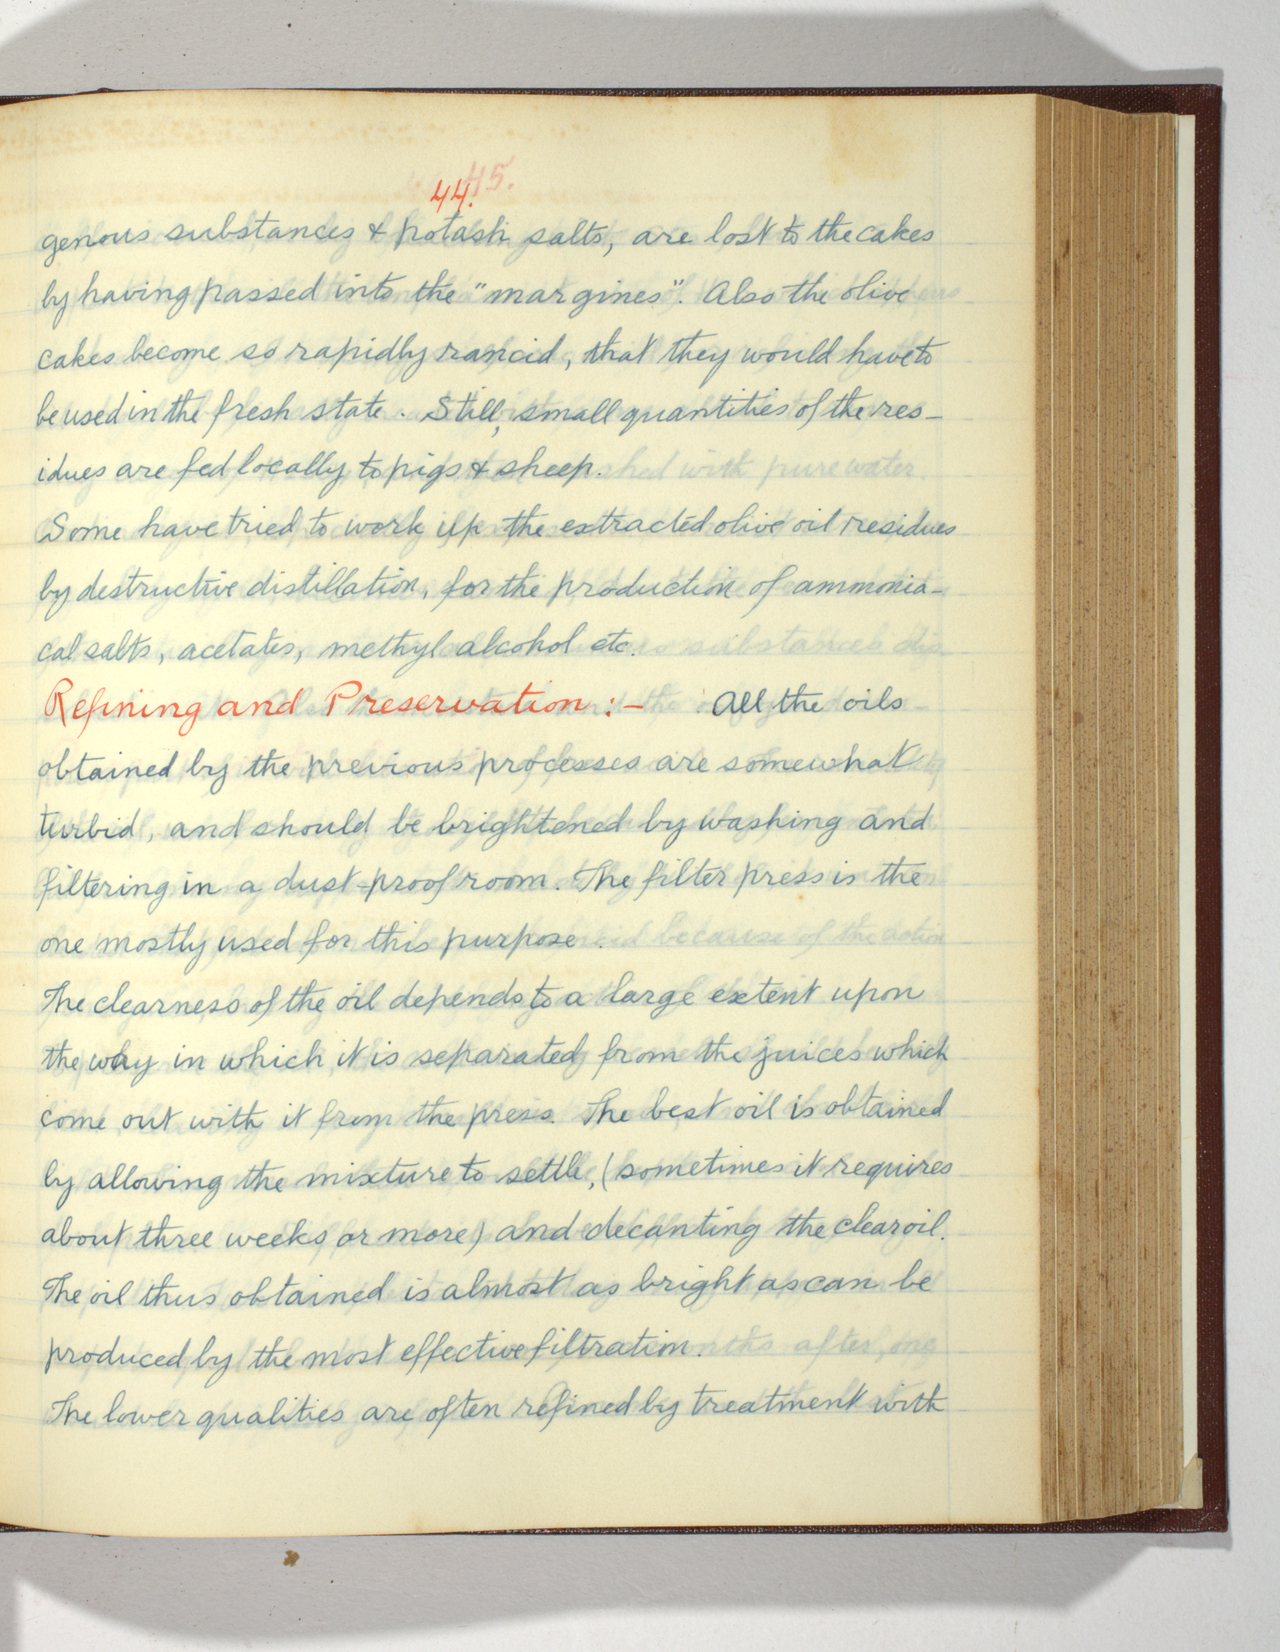 44.
genous substances & potash salts, are lost to the cakes
by having passed into the "margines". Also the olive
cakes become so rapidly rancid, that they would have to
be used in the fresh state. Still, small quantities of the res-
idues are fed locally to pigs & sheep.
Some have tried to work up the extracted olive oil residues
by destructive distillation, for the production of ammonia-
cal salts, acetates, methyl alcohol etc.
Refining and Preservation :- All the oils
obtained by the previous processes are somewhat
turbid, and should be brightened by washing and
filtering in a dust-proof room. The filter press is the
one mostly used for this purpose.
The clearness of the oil depends to a large extent upon
the way in which it is separated from the juices which
come out with it from the press. The best oil is obtained
by allowing the mixture to settle, (sometimes it requires
about three weeks or more) and decanting the clear oil.
The oil thus obtained is almost as bright as can be
produced by the most effective filtration.
The lower qualities are often refined by treatment with